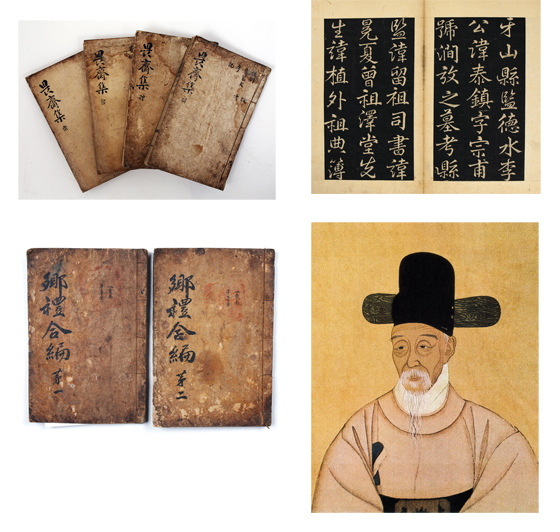 畏齋集
畏齋集
畏齋集
畏齋集
牙山縣監德水李
公諱泰鎮字宗甫
號澗放之墓考縣
監諱留祖司書諱
冕夏曾祖澤堂先
生諱植外祖典簿
鄉禮合編 苐一
鄉禮合編 苐二